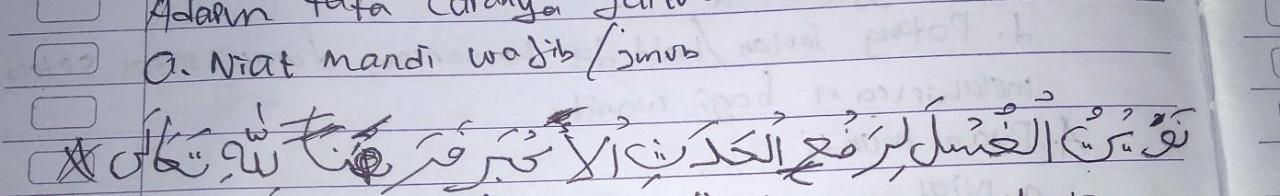 Adapun tata caranya
a. Niat mandi wajib / junub
نَوَيْتُ الْغُسْلَ لِرَفْعِ الْحَدَثِ الْأَكْبَرِ فَرْضًا لِلّٰهِ تَعَالَى